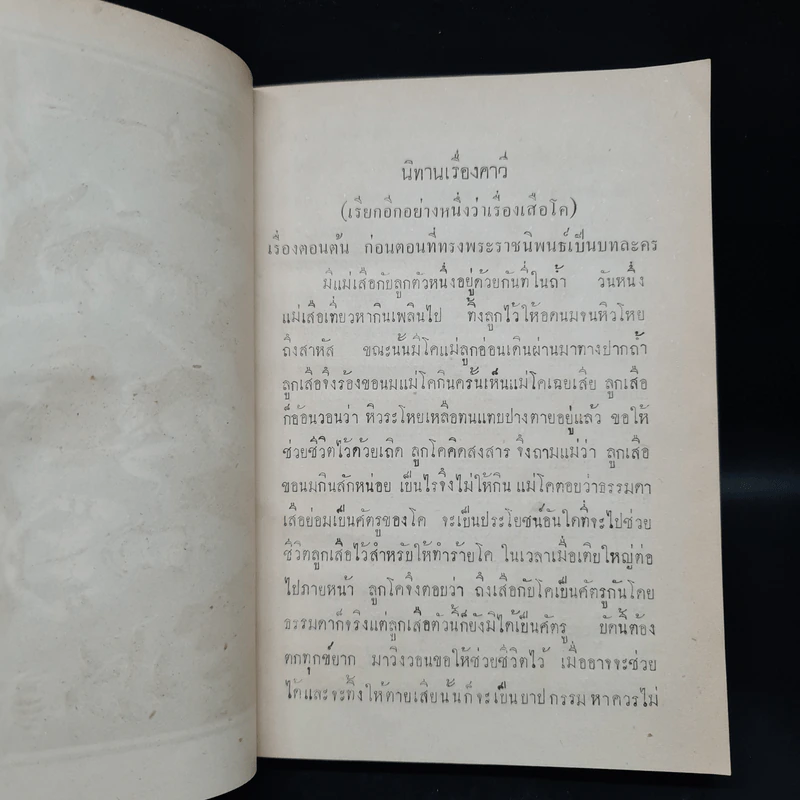 นิทานเรื่องคาวี
(เรียกอีกอย่างหนึ่งว่าเรื่องเสือโค)
เรื่องตอนต้น ก่อนตอนที่ทรงพระราชนิพนธ์เป็นบทละคร
มีแม่เสือกับลูกตัวหนึ่งอยู่ด้วยกันที่ในถ้ำ วันหนึ่ง
แม่เสือเที่ยวหากินเพลินไป ทิ้งลูกไว้ให้อดนมจนหิวโหย
ถึงสาหัส ขณะนั้นมีโคแม่ลูกอ่อนเดินผ่านมาทางปากถ้ำ
ลูกเสือจึงร้องขอนมแม่โคกินครั้นเห็นแม่โคเฉยเสีย ลูกเสือ
ก็อ้อนวอนว่า หิวระโหยเหลือทนแทบปางตายอยู่แล้ว ขอให้
ช่วยชีวิตไว้ด้วยเถิด ลูกโคคิดสงสาร จึงถามแม่ว่า ลูกเสือ
ขอนมกินสักหน่อย เป็นไรจึงไม่ให้กิน แม่โคตอบว่าธรรมดา
เสือย่อมเป็นศัตรูของโค จะเป็นประโยชน์อันใดที่จะไปช่วย
ชีวิตลูกเสือไว้สำหรับให้ทำร้ายโค ในเวลาเมื่อเติบใหญ่ต่อ
ไปภายหน้า ลูกโคจึงตอบว่า ถึงเสือกับโคเป็นศัตรูกันโดย
ธรรมดาก็จริงแต่ลูกเสือตัวนี้ก็ยังมิได้เป็นศัตรู บัดนี้ต้อง
ตกทุกข์ยาก มาวิงวอนขอให้ช่วยชีวิตไว้ เมื่ออาจจะช่วย
ได้และจะทิ้งให้ตายเสียนั้นก็จะเป็นบาปกรรมหาควรไม่